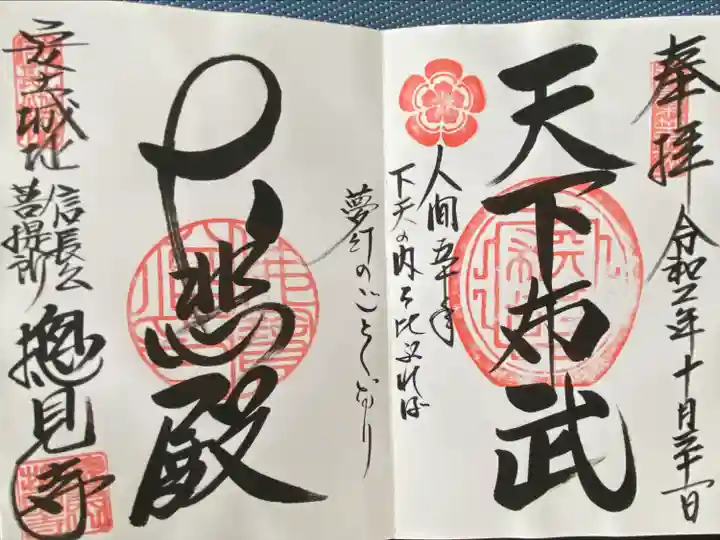 奉拝
令和二年十月三十一日
天下布武
人間五十年
下天の内を比ぶれば
夢幻のごとくなり
大悲殿
安土城址
信長公
菩提所
摠見寺